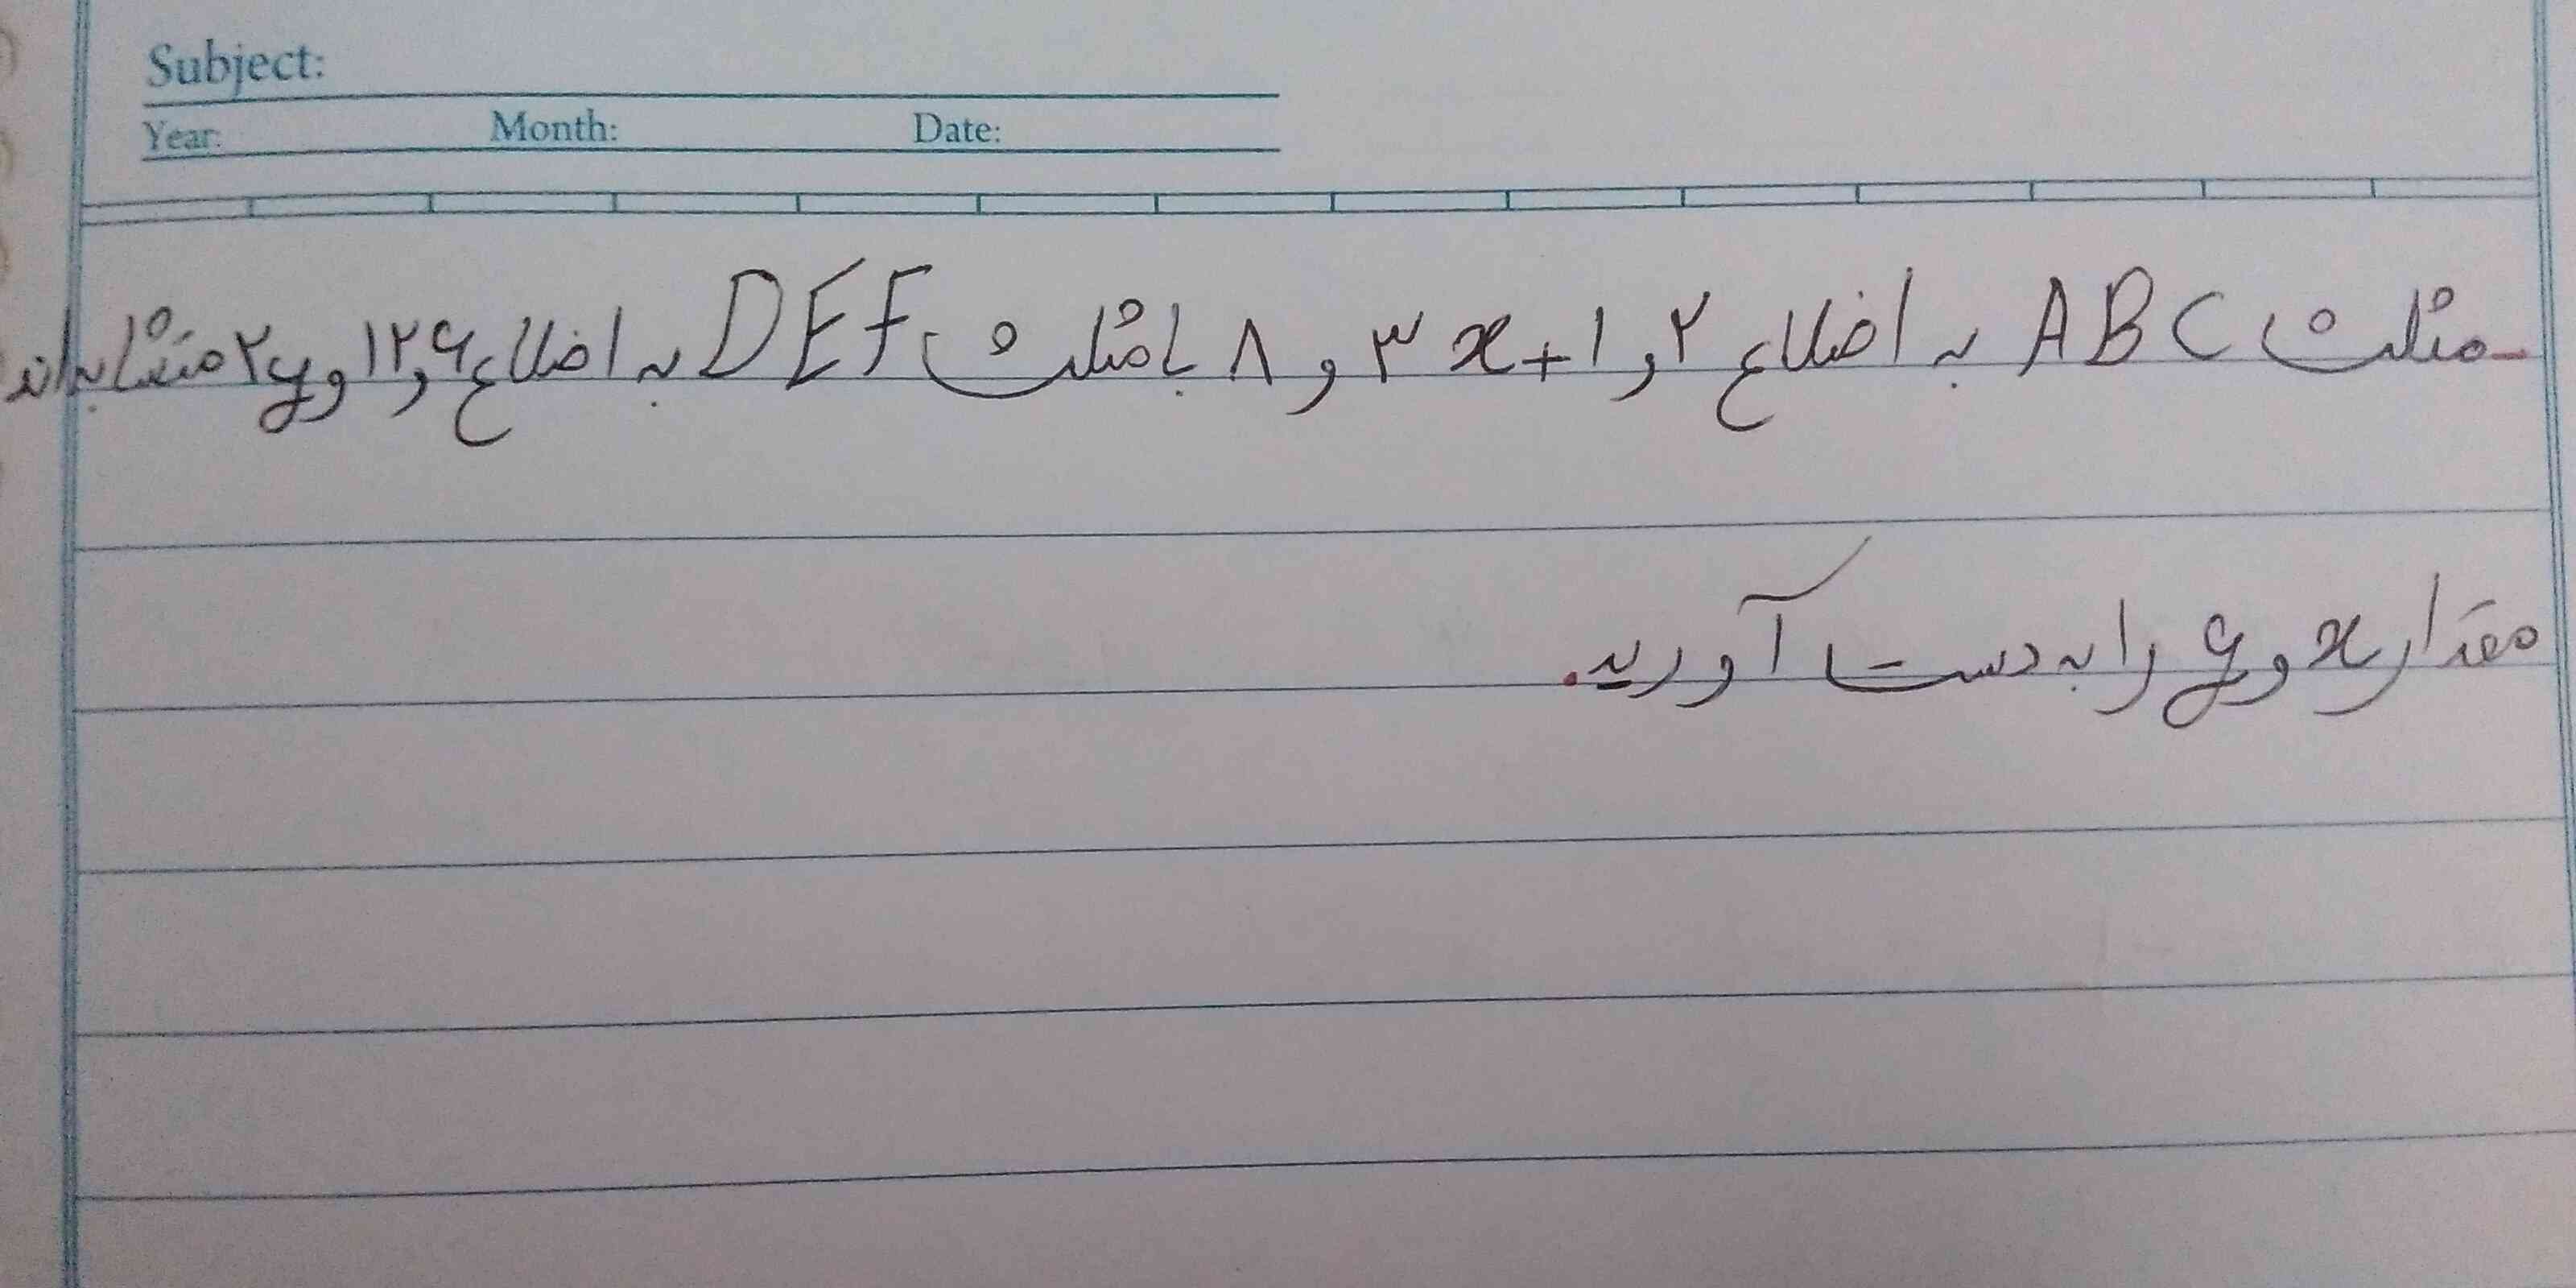 Subject:
Year: Month: Date:
مثلث ABC به اضلاع ۲ و ۳x+۱ و ۸ با مثلث DEF به اضلاع ۶ و ۱۲ و ۲y متشابه‌اند
مقدار x و y را به دست آورید.